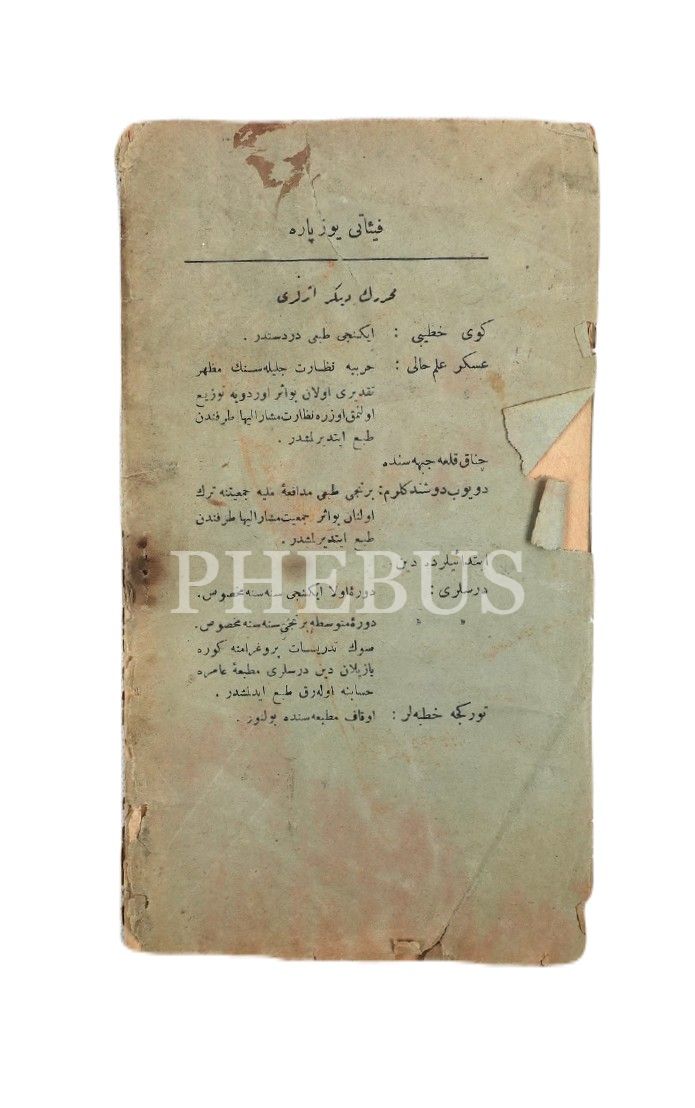 فيئاتی يوز پاره
محررك ديكر اثرلری
كوی خطيبی : ايكنجی طبعی دردستدر .
عسكر علم حالی : حربيه نظارت جليله سنك مظهر
تقديری اولان بو اثر اوردويه توزيع
اولنمق اوزره نظارت مشار اليها طرفندن
طبع ايتديرلمشدر .
چناق قلعه جبهه سنده
دويوب دوشندكلرم : برنجی طبعی مدافعۀ مليه جمعيتنه ترك
اولنان بو اثر جمعيت مشار اليها طرفندن
طبع ايتديرلمشدر .
ابتدائيلرده دين
درسلری : دورۀ اولا ايكنجی سنه سنه مخصوص .
» » دورۀ متوسطه برنجی سنه سنه مخصوص .
صوك تدريسات پروغرامنه كوره
يازيلان دين درسلری مطبعۀ عامره
حسابنه اوله رق طبع ايدلمشدر .
توركجه خطبه لر : اوقاف مطبعه سنده بولنور .
PHEBUS